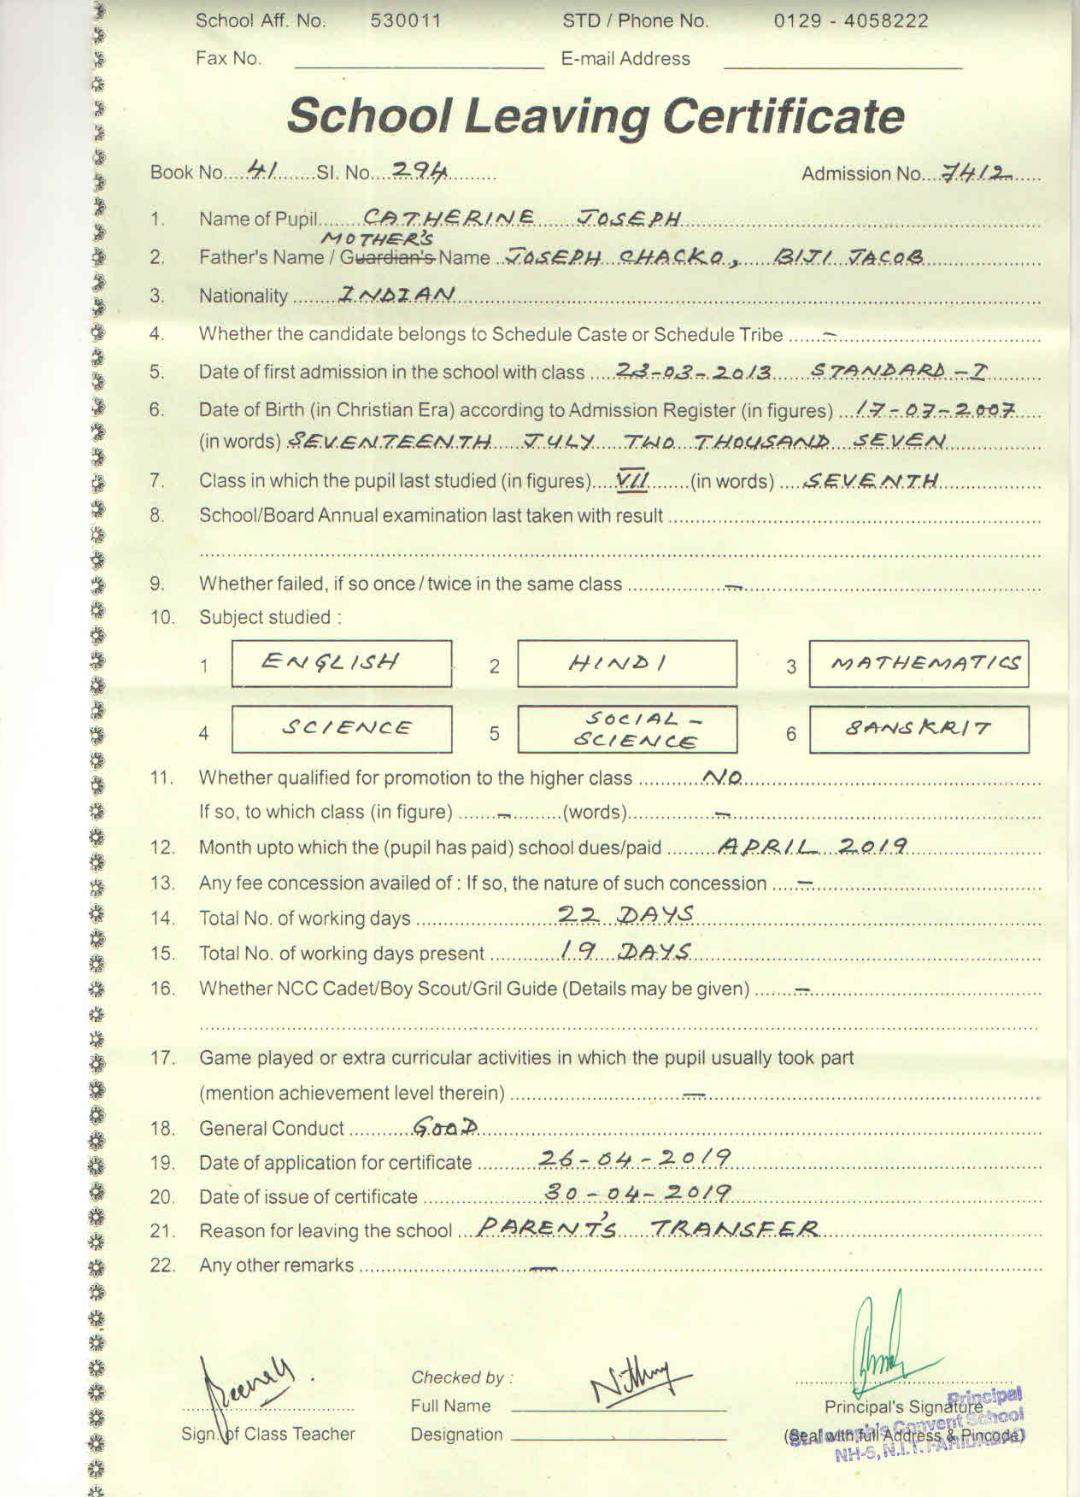 School Aff. No. 530011 STD / Phone No. 0129 - 4058222
Fax No. E-mail Address
School Leaving Certificate
Book No....41.......Sl. No....294......... Admission No....7412.....
1. Name of Pupil........CATHERINE JOSEPH
MOTHER'S
2. Father's Name / Guardian's Name ..JOSEPH CHACKO, BIJI JACOB
3. Nationality ........INDIAN
4. Whether the candidate belongs to Schedule Caste or Schedule Tribe ......–
5. Date of first admission in the school with class ....23-03-2013 STANDARD - I
6. Date of Birth (in Christian Era) according to Admission Register (in figures) ...17-07-2007
(in words) SEVENTEENTH JULY TWO THOUSAND SEVEN
7. Class in which the pupil last studied (in figures)....VII.......(in words) ....SEVENTH
8. School/Board Annual examination last taken with result
9. Whether failed, if so once / twice in the same class –
10. Subject studied :
1 ENGLISH 2 HINDI 3 MATHEMATICS
4 SCIENCE 5 SOCIAL - SCIENCE 6 SANSKRIT
11. Whether qualified for promotion to the higher class ..........NO
If so, to which class (in figure) ......–.........(words).............–
12. Month upto which the (pupil has paid) school dues/paid ........APRIL 2019
13. Any fee concession availed of : If so, the nature of such concession ....–
14. Total No. of working days 22 DAYS
15. Total No. of working days present 19 DAYS
16. Whether NCC Cadet/Boy Scout/Gril Guide (Details may be given) .......–
17. Game played or extra curricular activities in which the pupil usually took part
(mention achievement level therein) –
18. General Conduct GOOD
19. Date of application for certificate 26-04-2019
20. Date of issue of certificate 30-04-2019
21. Reason for leaving the school ...PARENT'S TRANSFER
22. Any other remarks –
Checked by :
Full Name
Principal's Signature
Principal
Sign. of Class Teacher
Designation
(Seal with full Address & Pincode)
Convent School
NH-5, N.I.T. FARIDABAD